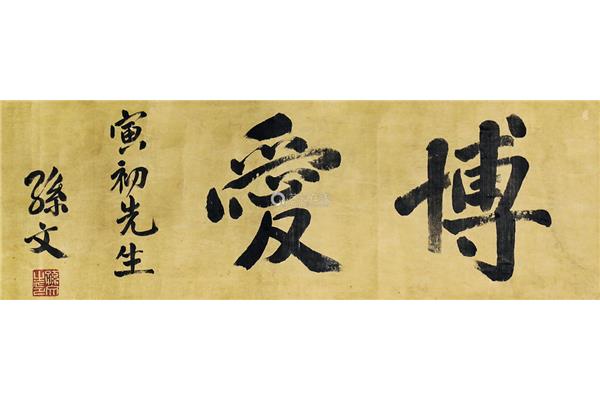 博愛
寅初先生
孫文